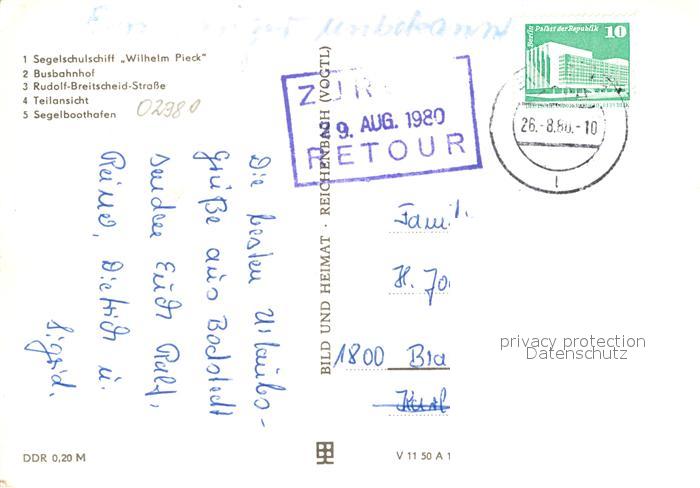 unbekannt
1 Segelschulschiff „Wilhelm Pieck"
2 Busbahnhof
3 Rudolf-Breitscheid-Straße
4 Teilansicht
5 Segelboothafen
02380
Die besten Urlaubs-
grüße aus Bodstedt
senden Euch Ralf,
Reino, Dietrich u.
Sigrid.
BILD UND HEIMAT · REICHENBACH (VOGTL)
ZUR
29. AUG. 1980
RETOUR
Berlin Palast der Republik 10
26.-8.80.-10
Famil
H. Jo
1800 Bra
privacy protection
Datenschutz
DDR 0,20 M
V 11 50 A 1